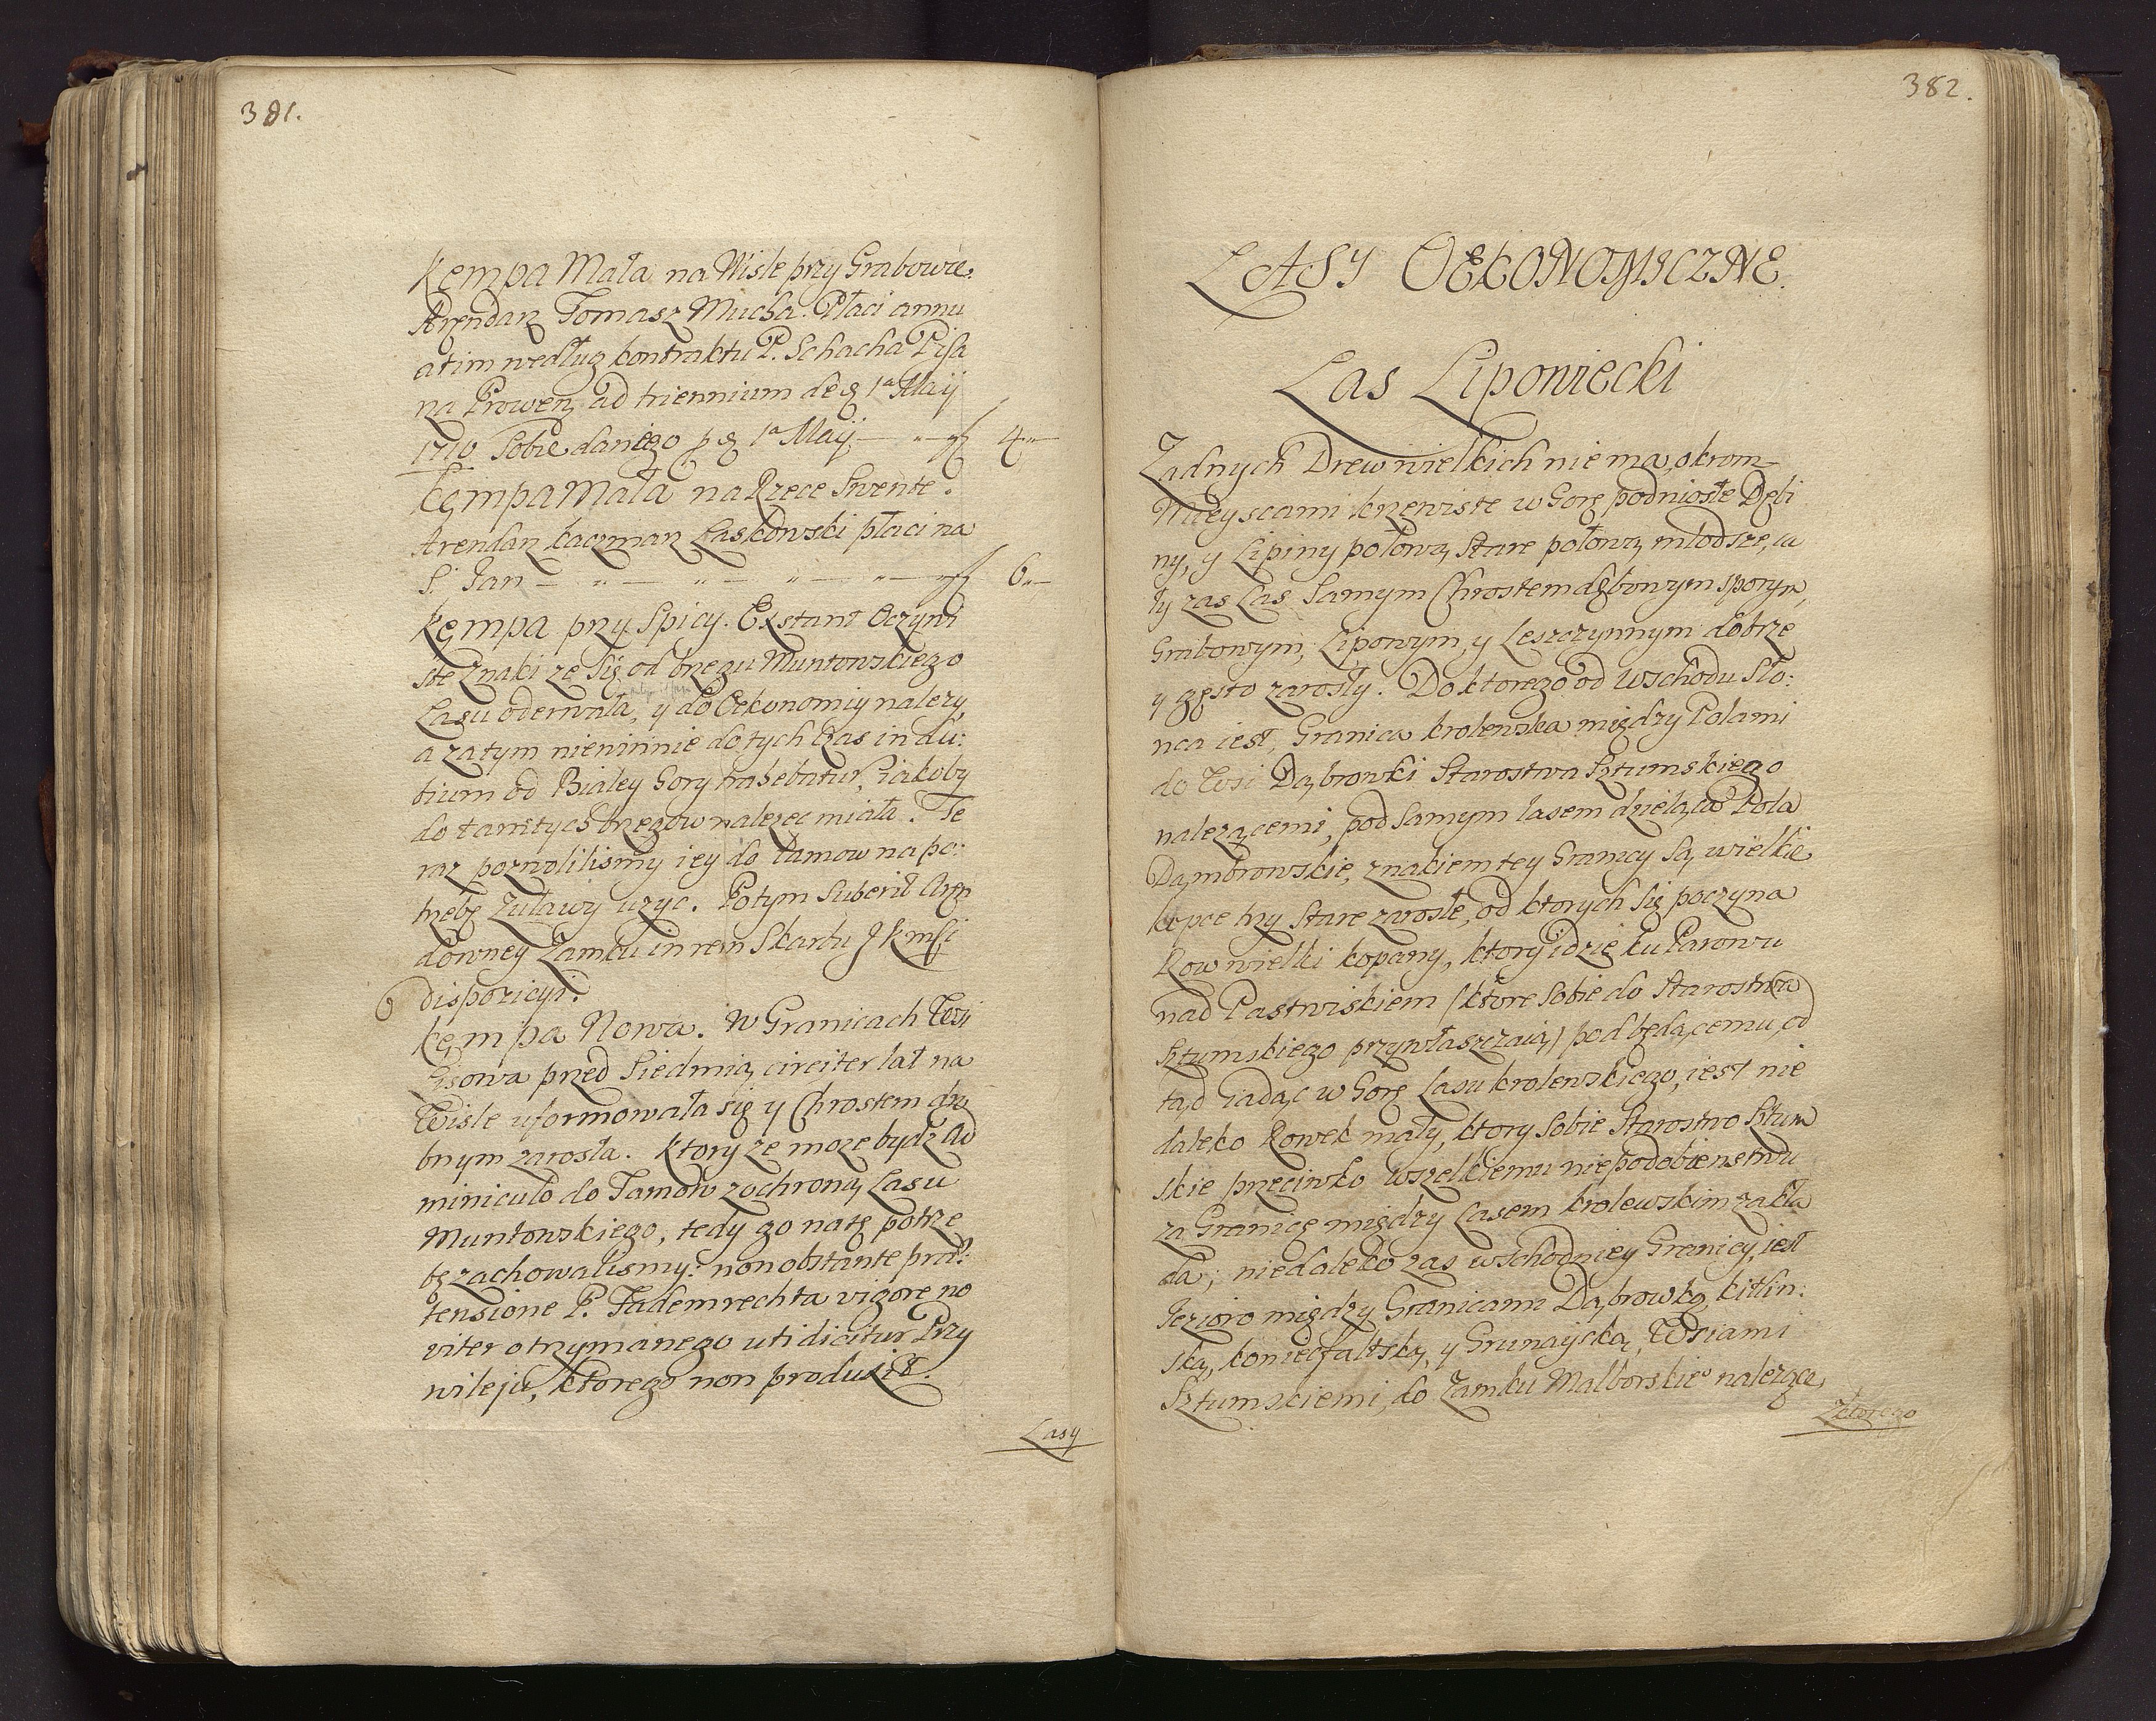 381.
Kempa Mała na Wisle przy Grabowie.
Arendarz Tomasz Mucha. Płaci annu
atim według kontraktu P. Schacha Pisa
rza Prowen. ad triennium de 1ª Maij
1710 Sobie danego 1ª Maij — " — 4 " —
Kempa Mała na Rzece Swente.
Arendarz karzmarz Laskowski płaci na
S. Jan — " — " — " — " — 6 " —
Kempa przy Spicy. Exstant Oczywi
ste Znaki ze się od brzegu Muntowskiego
Lasu oderwała, y do Oekonomiy nalezy,
a zatym niewinnie do tych Czas in du:
bium od Białey Gory habebatur, iakoby
do tamtych brzegow nalezec miała. Te
raz pozwolilismy iey do tamow na po:
trzebę Zuławy uzyc. Potym Suberit Aren
downey Zamku in rem Skarbu J K Msci
dispozicyi.
Kempa Nowa. W Granicach Wsi
Gisowa przed Siedmią circiter lat na
Wisle uformowała się y Chrostem dro
bnym zarosła. Ktory ze moze bydz Ad
miniculo do Tamow z ochroną Lasu
Muntowskiego, tedy go na tę potrze
bę zachowalismy: non obstante præ:
tensione P. Fademrechta vigore no
viter otrzymanego uti dicitur Przy
wileju, ktorego non produxit.
Lasy
382.
LASY OEKONOMICZNE.
Las Lipowiecki
Zadnych Drew wielkich nie ma, okrom
Mieyscami krzewiste w Gorę podniosłe Dębi
ny, y Lipiny połową Stare połową młodsze, ca
ły zas Las Samym Chrostem dębowym sporym,
Grabowym, Lipowym, y Leszczynnym dobrze
y gęsto zarosły. Do ktorego od wschodu Sło:
nca iest, Granica krolewska między Polami
do Wsi Dąbrowki Starostwa Sztumskiego
nalezącemi, pod Samym lasem dzieląca Pola
Dąmbrowskie, znakiem tey Granicy Są wielkie
kopce trzy Stare zarosłe, od ktorych się poczyna
Row wielki kopany, ktory idzie ku Parowu
nad Pastwiskiem (ktore Sobie do Starostwa
Sztumskiego przywłaszczaią) pod będącemu, od
tąd iadąc w Gorę Lasu krolewskiego, iest nie
daleko Rowek mały, ktory Sobie Starostwo Sztum
skie przeciwko wszelkiemu niepodobienstwu
za Granicę między Lasem krolewskim zakła
da, niedaleko zas wschodniey Granicy, iest
Jezioro między Granicami Dąbrowką, kitlin:
ską, koniecfaltską, y Grunayską, Wsiami
Sztumskiemi, do Zamku Malborskie° nalezące,